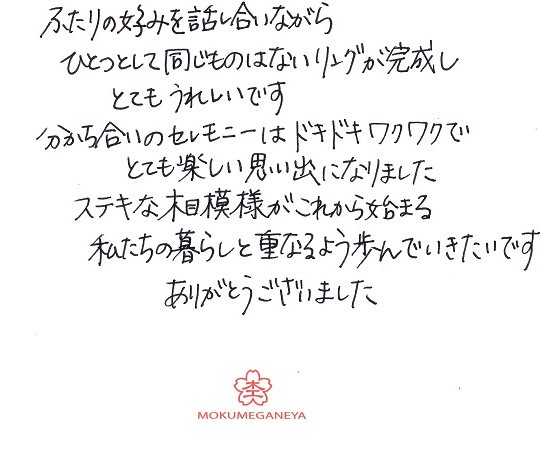 ふたりの好みを話し合いながら
ひとつとして同じものはないリングが完成し
とてもうれしいです
分かち合いのセレモニーはドキドキワクワクで
とても楽しい思い出になりました
ステキな木目模様がこれから始まる
私たちの暮らしと重なるよう歩んでいきたいです
ありがとうございました
杢
MOKUMEGANEYA